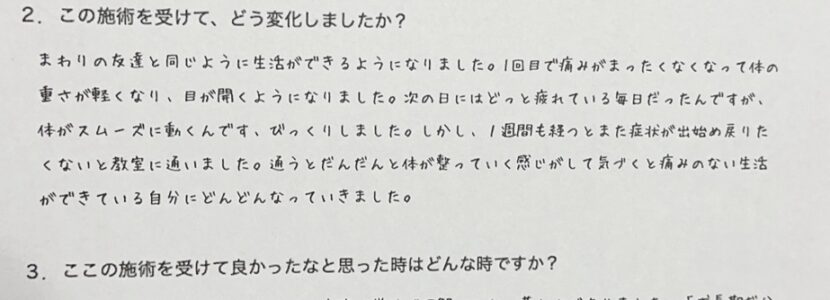 2. この施術を受けて、どう変化しましたか？
まわりの友達と同じように生活ができるようになりました。1回目で痛みがまったくなくなって体の
重さが軽くなり、目が開くようになりました。次の日にはどっと疲れている毎日だったんですが、
体がスムーズに動くんです、びっくりしました。しかし、1週間も経つとまた症状が出始め戻りた
くないと教室に通いました。通うとだんだんと体が整っていく感じがして気づくと痛みのない生活
ができている自分にどんどんなっていきました。
3. ここの施術を受けて良かったなと思った時はどんな時ですか？